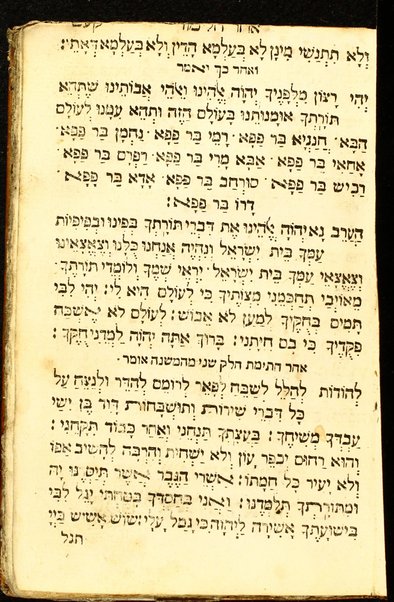 וְלָא תִתְנְשֵׁי מִינָן לָא בְּעָלְמָא הָדֵין וְלָא בְּעָלְמָא דְּאָתֵי:
ואחר כך יאמר
יְהִי רָצוֹן מִלְּפָנֶיךָ יְהֹוָה אֱלֹהֵינוּ וֵאלֹהֵי אֲבוֹתֵינוּ שֶׁתְּהֵא
תוֹרָתְךָ אוּמָנוּתֵנוּ בָּעוֹלָם הַזֶּה וּתְהֵא עִמָּנוּ לָעוֹלָם
הַבָּא׃ חֲנַנְיָא בַּר פָּפָּא׃ רָמֵי בַּר פָּפָּא׃ נַחְמָן בַּר פָּפָּא׃
אֲחָאי בַּר פָּפָּא׃ אַבָּא מָרִי בַּר פָּפָּא׃ רַפְרָם בַּר פָּפָּא׃
רָכִישׁ בַּר פָּפָּא׃ סוֹרְחָב בַּר פָּפָּא׃ אַדָּא בַּר פָּפָּא׃
דָּרוֹ בַּר פָּפָּא׃
הַעֲרֵב נָא יְהֹוָה אֱלֹהֵינוּ אֶת דִּבְרֵי תּוֹרָתְךָ בְּפִינוּ וּבְפִיפִיּוֹת
עַמְּךָ בֵּית יִשְׂרָאֵל וְנִהְיֶה אֲנַחְנוּ כֻּלָּנוּ וְצֶאֱצָאֵינוּ
וְצֶאֱצָאֵי עַמְּךָ בֵּית יִשְׂרָאֵל׃ יִרְאֵי שְׁמֶךָ וְלוֹמְדֵי תוֹרָתֶךָ׃
מֵאוֹיְבַי תְּחַכְּמֵנִי מִצְוֹתֶיךָ כִּי לְעוֹלָם הִיא לִי׃ יְהִי לִבִּי
תָמִים בְּחֻקֶּיךָ לְמַעַן לֹא אֵבוֹשׁ׃ לְעוֹלָם לֹא אֶשְׁכַּח
פִּקּוּדֶיךָ כִּי בָם חִיִּיתָנִי׃ בָּרוּךְ אַתָּה יְהֹוָה לַמְּדֵנִי חֻקֶּיךָ׃
אחר התימת הלק שני מהמשנה אומר׃
לְהוֹדוֹת לְהַלֵּל לְשַׁבֵּחַ לְפָאֵר לְרוֹמֵם לְהַדֵּר וּלְנַצֵּחַ עַל
כָּל דִּבְרֵי שִׁירוֹת וְתוּשְׁבְּחוֹת דָּוִד בֶּן יִשַׁי
עַבְדְּךָ מְשִׁיחֶךָ׃ בַּעֲצָתְךָ תַנְחֵנִי וְאַחַר כָּבוֹד תִּקָּחֵנִי׃
וְהוּא רַחוּם יְכַפֵּר עָוֹן וְלֹא יַשְׁחִית וְהִרְבָּה לְהָשִׁיב אַפּוֹ
וְלֹא יָעִיר כָּל חֲמָתוֹ׃ אַשְׁרֵי הַגֶּבֶר אֲשֶׁר תְּיַסְּרֶנּוּ יָהּ
וּמִתּוֹרָתְךָ תְלַמְּדֶנּוּ׃ וַאֲנִי בְּחַסְדְּךָ בָטַחְתִּי יָגֵל לִבִּי
בִּישׁוּעָתֶךָ אָשִׁירָה לַיהֹוָה כִּי גָמַל עָלָי׃ שׂוֹשׂ אָשִׂישׂ בַּייָ
תגל